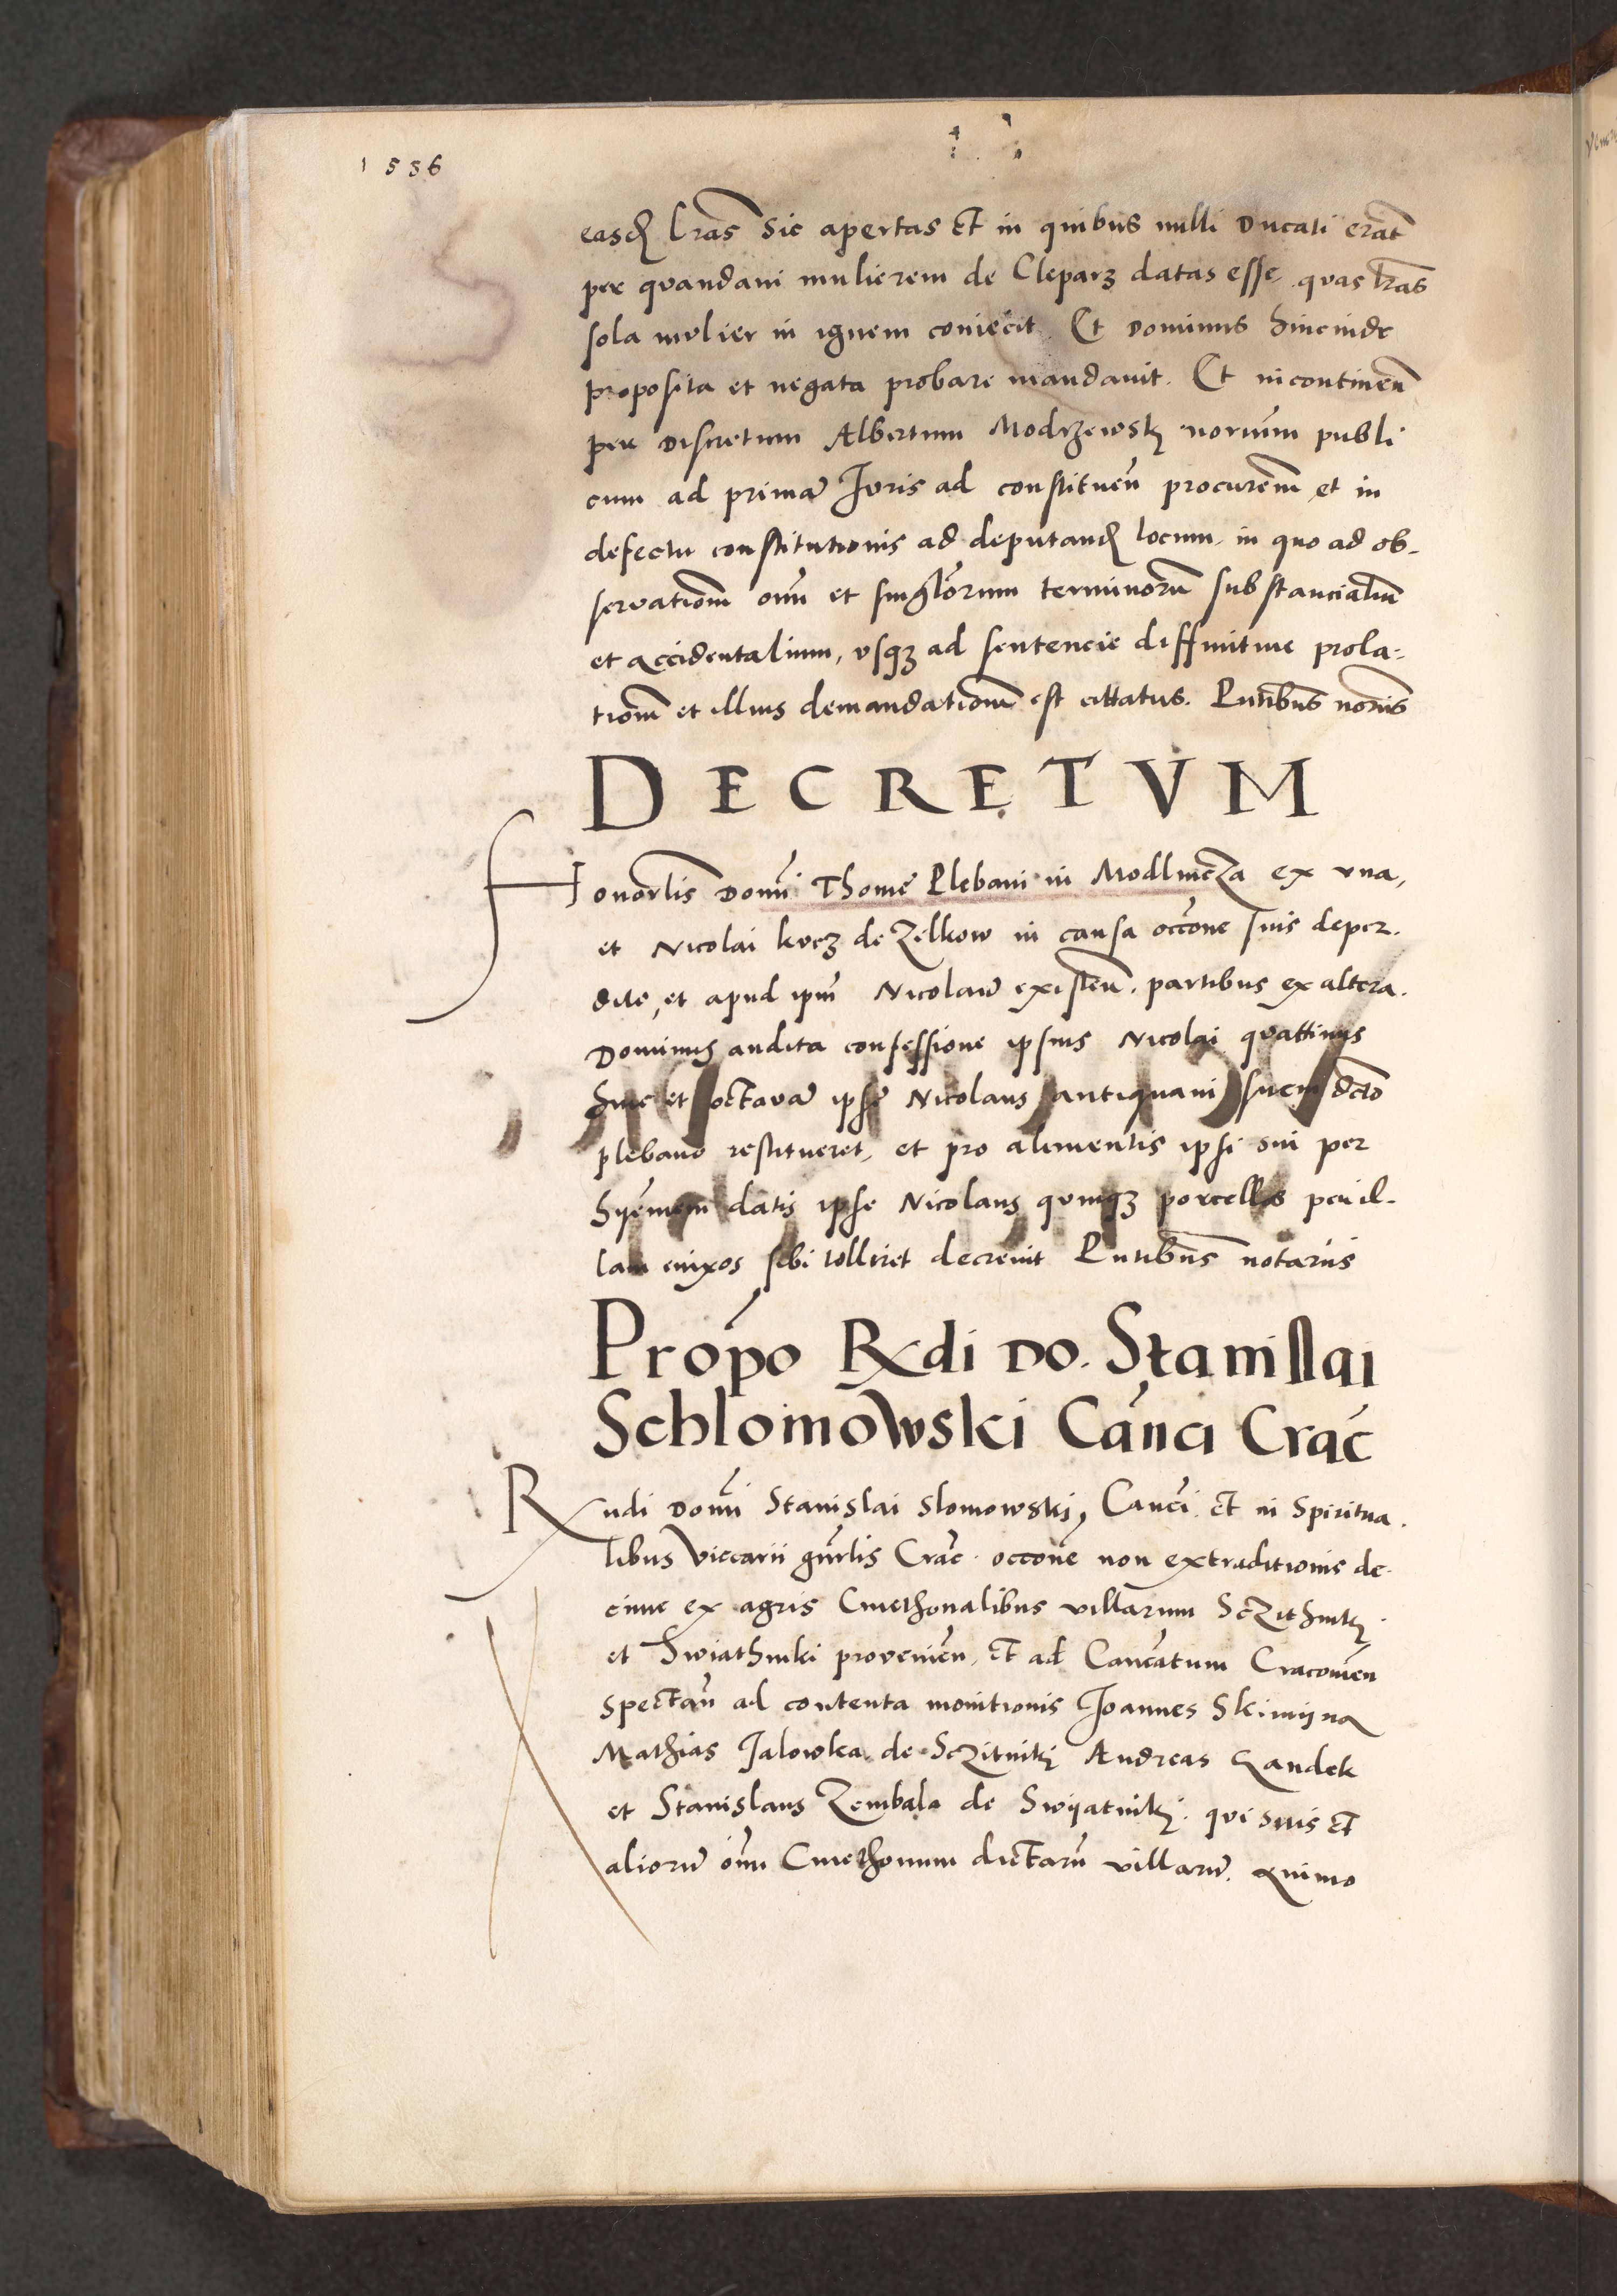 1536
easdem l̃ras sic apertas et in quibus nulli Ducati erãt
per quandam mulierem de Cleparz datas esse. quas l̃ras
sola mulier in ignem coniecit. Et Dominus hincinde
proposita et negata probare mandavit. Et incontineñ
per Discretum Albertum Modrzewsky notariũm publi
cum ad primã Juris ad constitueñ procurem̃ et in
defectu constitutionis ad deputanḋ locum, in quo ad ob-
servationẽ om̃ et singl̃orum terminorũ substancialiũ
et accidentalium, vsqz ad sentencie diffinitiue prola-
tionẽ et illius demandationẽ est cittatus. P̃ntibus not̃riis
DECRETVM
Honorl̃is Dom̃i Thome Plebani in Modlnicza ex vna,
et Nicolai kvcz de Zelkow in causa occõne suis deper-
dite, et apud ip̃m Nicolaũ existeñ. partibus ex altera.
Dominus audita confessione ipsius Nicolai quattinus
hinc et octavã ipse Nicolaus antiquam suem dc̃to
plebano restitueret, et pro alimentis ipsi sui per
hyemem datis ipse Nicolaus quinqz porcellos per il-
lam enixos sibi tolleret decrevit P̃ntibus notariis
Prop̃o Rx̃di Do. Stanislai
Schlomowski Cañci Crac̃
Rx̃udi Dom̃i Stanislai Slomowski, Canc̃i et in Spiritua-
libus Viccarii gñrlis Crac̃. occõne non extraditionis de-
cime ex agris Cmethonalibus villarum Sczithniky
et Swiathniki provenieñ, et ad Canc̃atum Cracovieñ
spectañ ad contenta monitionis Joannes Skimijna
Mathias Jalowka de Sczitniky Andreas Gandek
et Stanislaus Zembala de Swyatniky. qui suis et
aliorũ om̃ Cmethonum dictarũ villarũ. animo